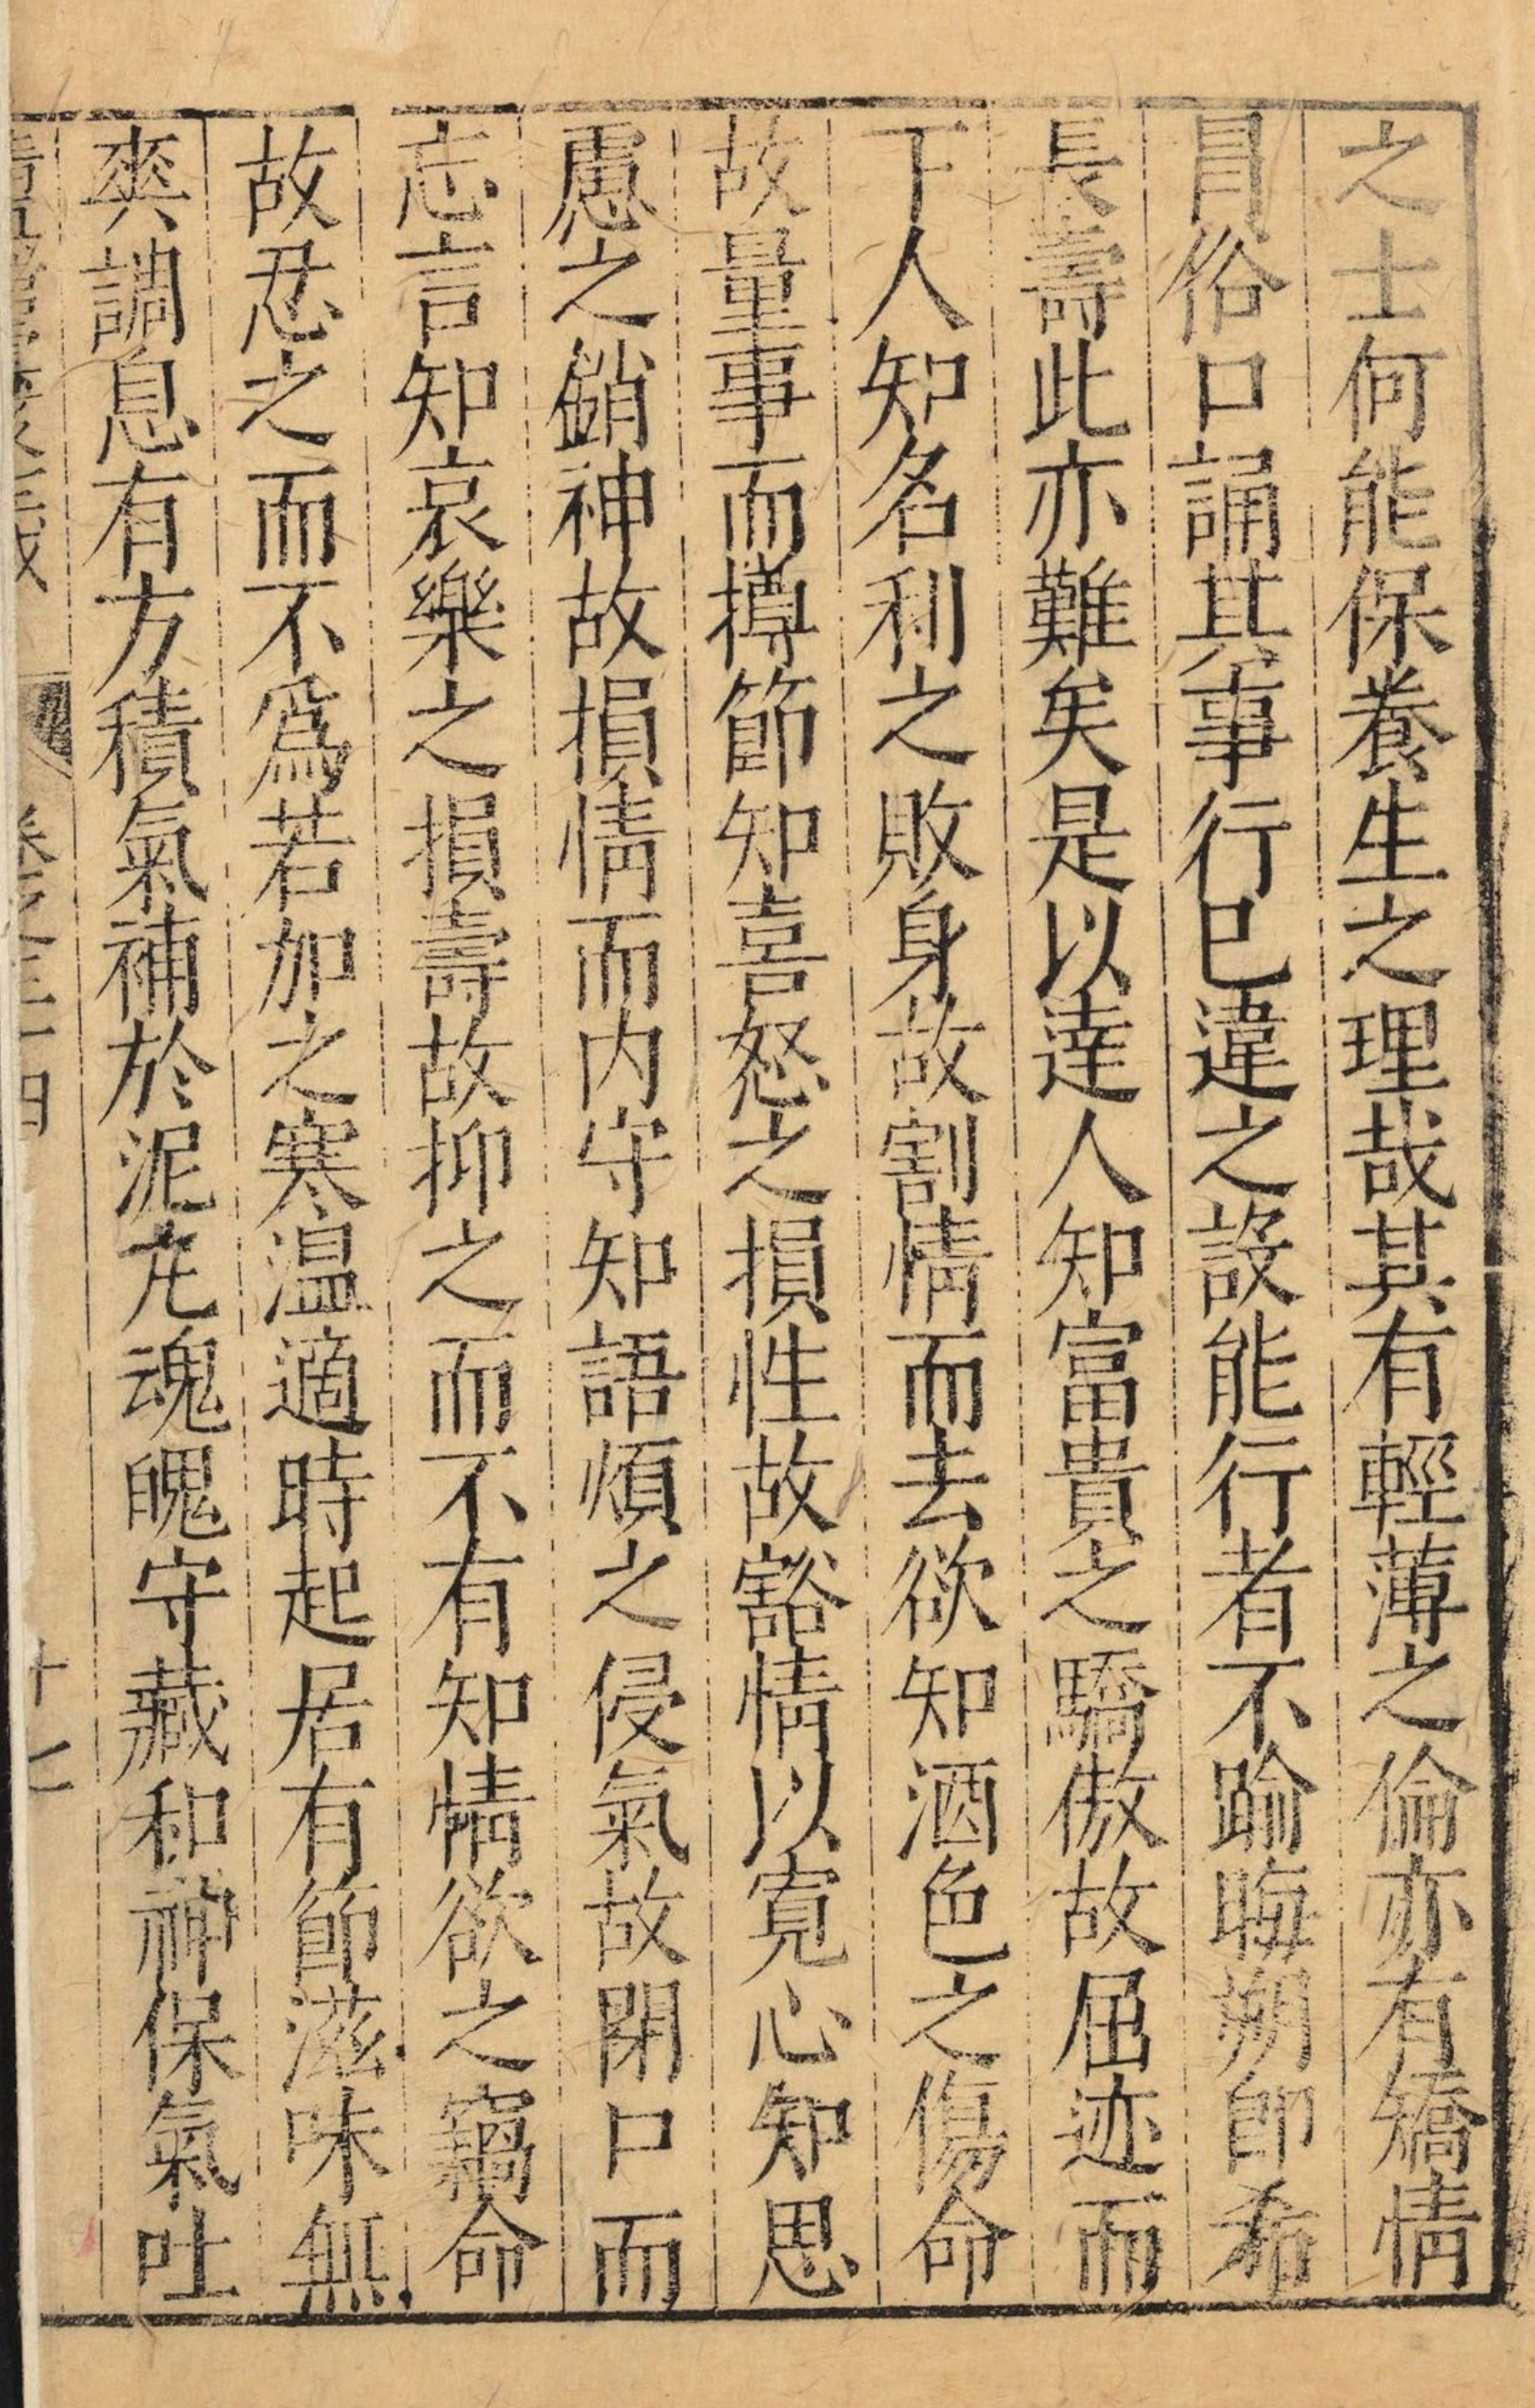 之士何能保養生之理哉其有輕薄之倫亦有矯情
冐俗口誦其事行已違之設能行者不踰晦朔即希
長壽此亦難矣是以達人知富貴之驕傲故屈迹而
下人知名利之敗身故割情而去欲知酒色之傷命
故量事而撙節知喜怒之損性故豁情以寬心知思
慮之銷神故損情而内守知語煩之侵氣故閉口而
忘言知哀樂之損壽故抑之而不有知情欲之竊命
故忍之而不爲若加之寒温適時起居有節滋味無
爽調息有方積氣補於泥丸魂魄守藏和神保氣吐
卷之三四
十七